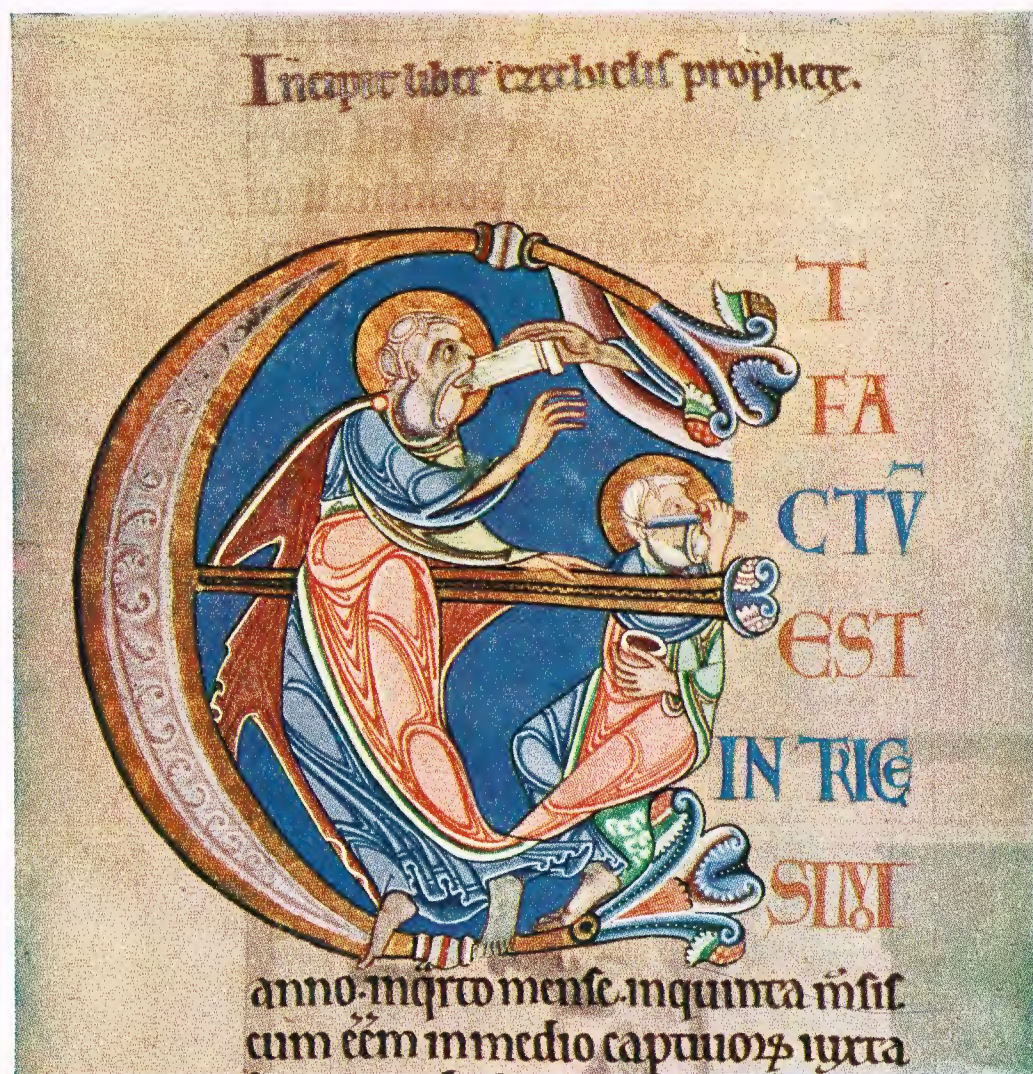 Incipit liber ezechielis prophetę.
ET
FA
CTŪ
EST
IN TRICE
SIMI
anno·inqͥrto mense·inquinta m̅sis.
cum eēm inmedio captiuoꝝ iuxta